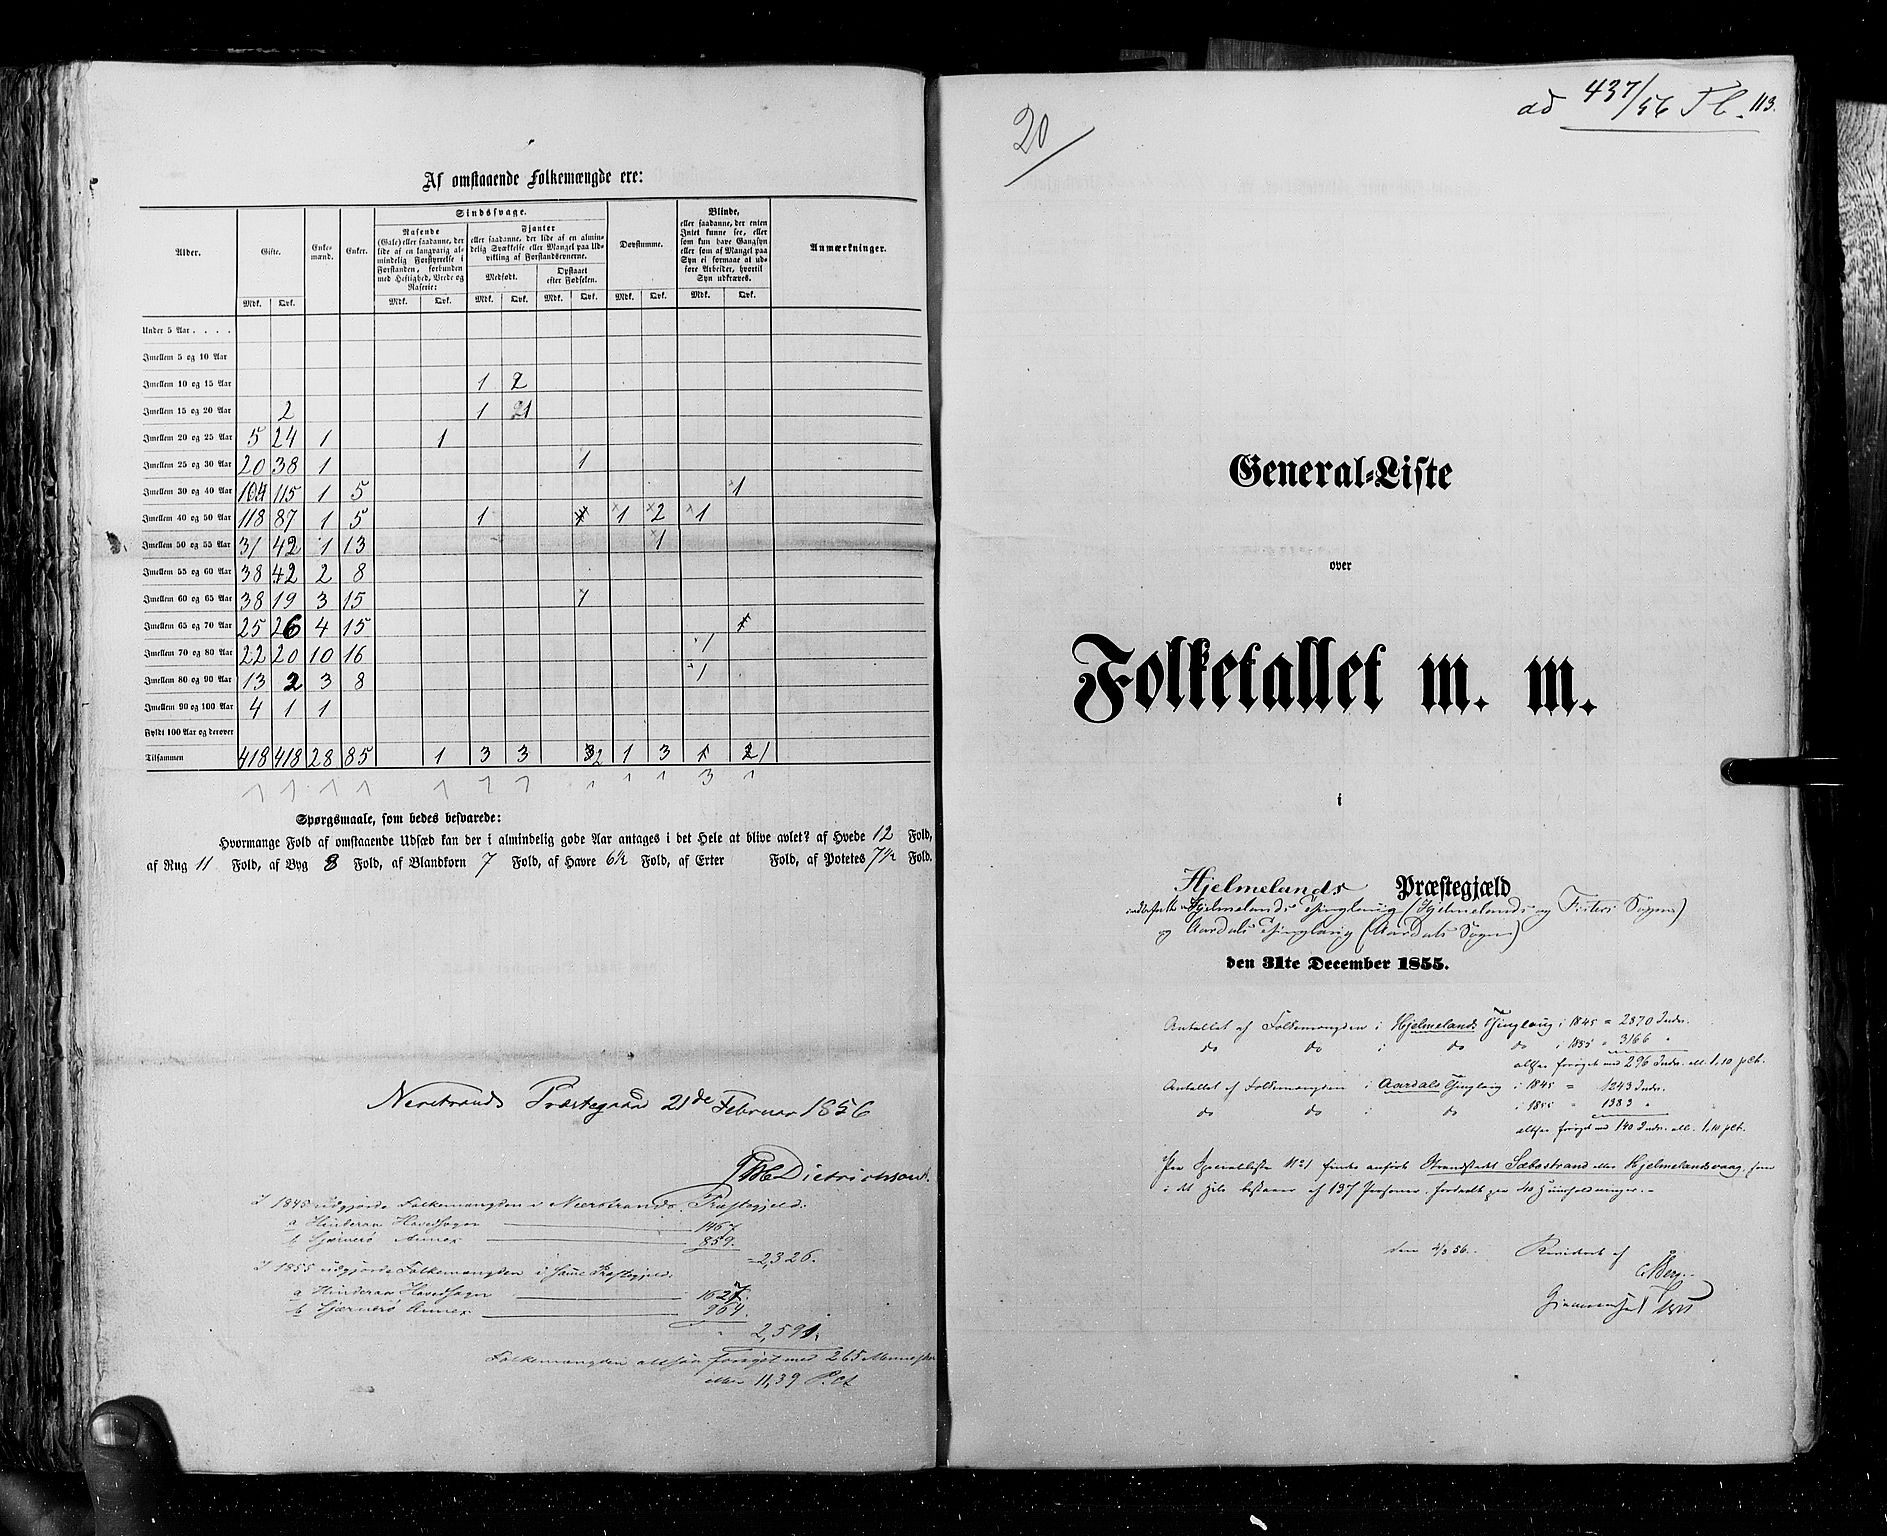 Af omstaaende Folkemængde ere:
Alder.
Gifte.
Enkemænd.
Enker.
Sindssvage.
Rasende
(Gale) eller saadanne, der
lide af en langvarig almindelig Forstyrrelse i
Forstanden, forbunden
med Heftighed, Vrede og
Raserie:
Fjanter
eller saadanne, der lide af en almindelig Svækkelse eller Mangel paa Udvikling af Forstandsevnerne.
Medfødt.
Opstaaet
efter Fødselen.
Døvstumme.
Blinde,
eller saadanne, der enten
Intet kunne see, eller
som kun have Gangsyn
eller som af Mangel paa
Syn ei formaae at udføre Arbeider, hvortil
Syn udkræves.
Anmærkninger.
Mdk. Qvk. Mdk. Qvk. Mdk. Qvk. Mdk. Qvk. Mdk. Qvk. Mdk. Qvk.
Under 5 Aar . . . .
Imellem 5 og 10 Aar
Imellem 10 og 15 Aar 1 2
Imellem 15 og 20 Aar 2 1 1
Imellem 20 og 25 Aar 5 24 1 1
Imellem 25 og 30 Aar 20 38 1 1
Imellem 30 og 40 Aar 104 115 1 5 1
Imellem 40 og 50 Aar 118 87 1 5 1 1 2 1
Imellem 50 og 55 Aar 31 42 1 13 1
Imellem 55 og 60 Aar 38 42 2 8
Imellem 60 og 65 Aar 38 19 3 15 1
Imellem 65 og 70 Aar 25 26 4 15 1
Imellem 70 og 80 Aar 22 20 10 16 1
Imellem 80 og 90 Aar 13 2 3 8 1
Imellem 90 og 100 Aar 4 1 1
Fyldt 100 Aar og derover
Tilsammen 418 418 28 85 1 3 3 2 1 3 1 1
3
Spørgsmaale, som bedes besvarede:
Hvormange Fold af omstaaende Udsæd kan der i almindelig gode Aar antages i det Hele at blive avlet? af Hvede 12 Fold,
af Rug 11 Fold, af Byg 8 Fold, af Blandkorn 7 Fold, af Havre 6½ Fold, af Erter Fold, af Potetes 7½ Fold.
Nerstrands Præstegaard 21de Februar 1856
Dietrichson.
I 1845 udgjorde Folkemængden i Nerstrands Præstegjeld:
a Hinderaa Hovedsogn 1467
b Sjærnerø Annex 859.
= 2,326.
I 1855 udgjorde Folkemængden i samme Præstegjeld:
a Hinderaa Hovedsogn 1627.
b Sjærnerø Annex 964.
2,591.
Folkemængden altsaa forøget med 265 Mennesker
eller 11,39 P.ct
20
ad 437/56 Fl. 113.
General-Liste
over
Folketallet m. m.
i
Hjelmelands Præstegjæld
indbefatter Hjelmelands Thinglaug (Hjelmelands og Fisters Sogne)
og Aardals Thinglaug (Aardals Sogn)
den 31te December 1855.
Antallet af Folkemængden i Hjelmelands Thinglaug i 1845 = 2870 Indv.
do do i do do i 1855 = 3166 "
altsaa forøget med 296 Indv. ell. 1,10 pCt.
Antallet af Folkemængden i Aardals Thinglaug i 1845 = 1243 Indv.
do do i do i 1855 " 1383 "
altsaa forøget med 140 Indv. ell. 1,10 pCt.
Paa Specialliste N 21 findes anført Strandstedet Sæbøstrand eller Hjelmelandsvaag, som
i det Hele bestaaer af 137 Personer, fordeelt paa 40 Huusholdninger. -
den 4/3 56. Revideret af
C Berg.